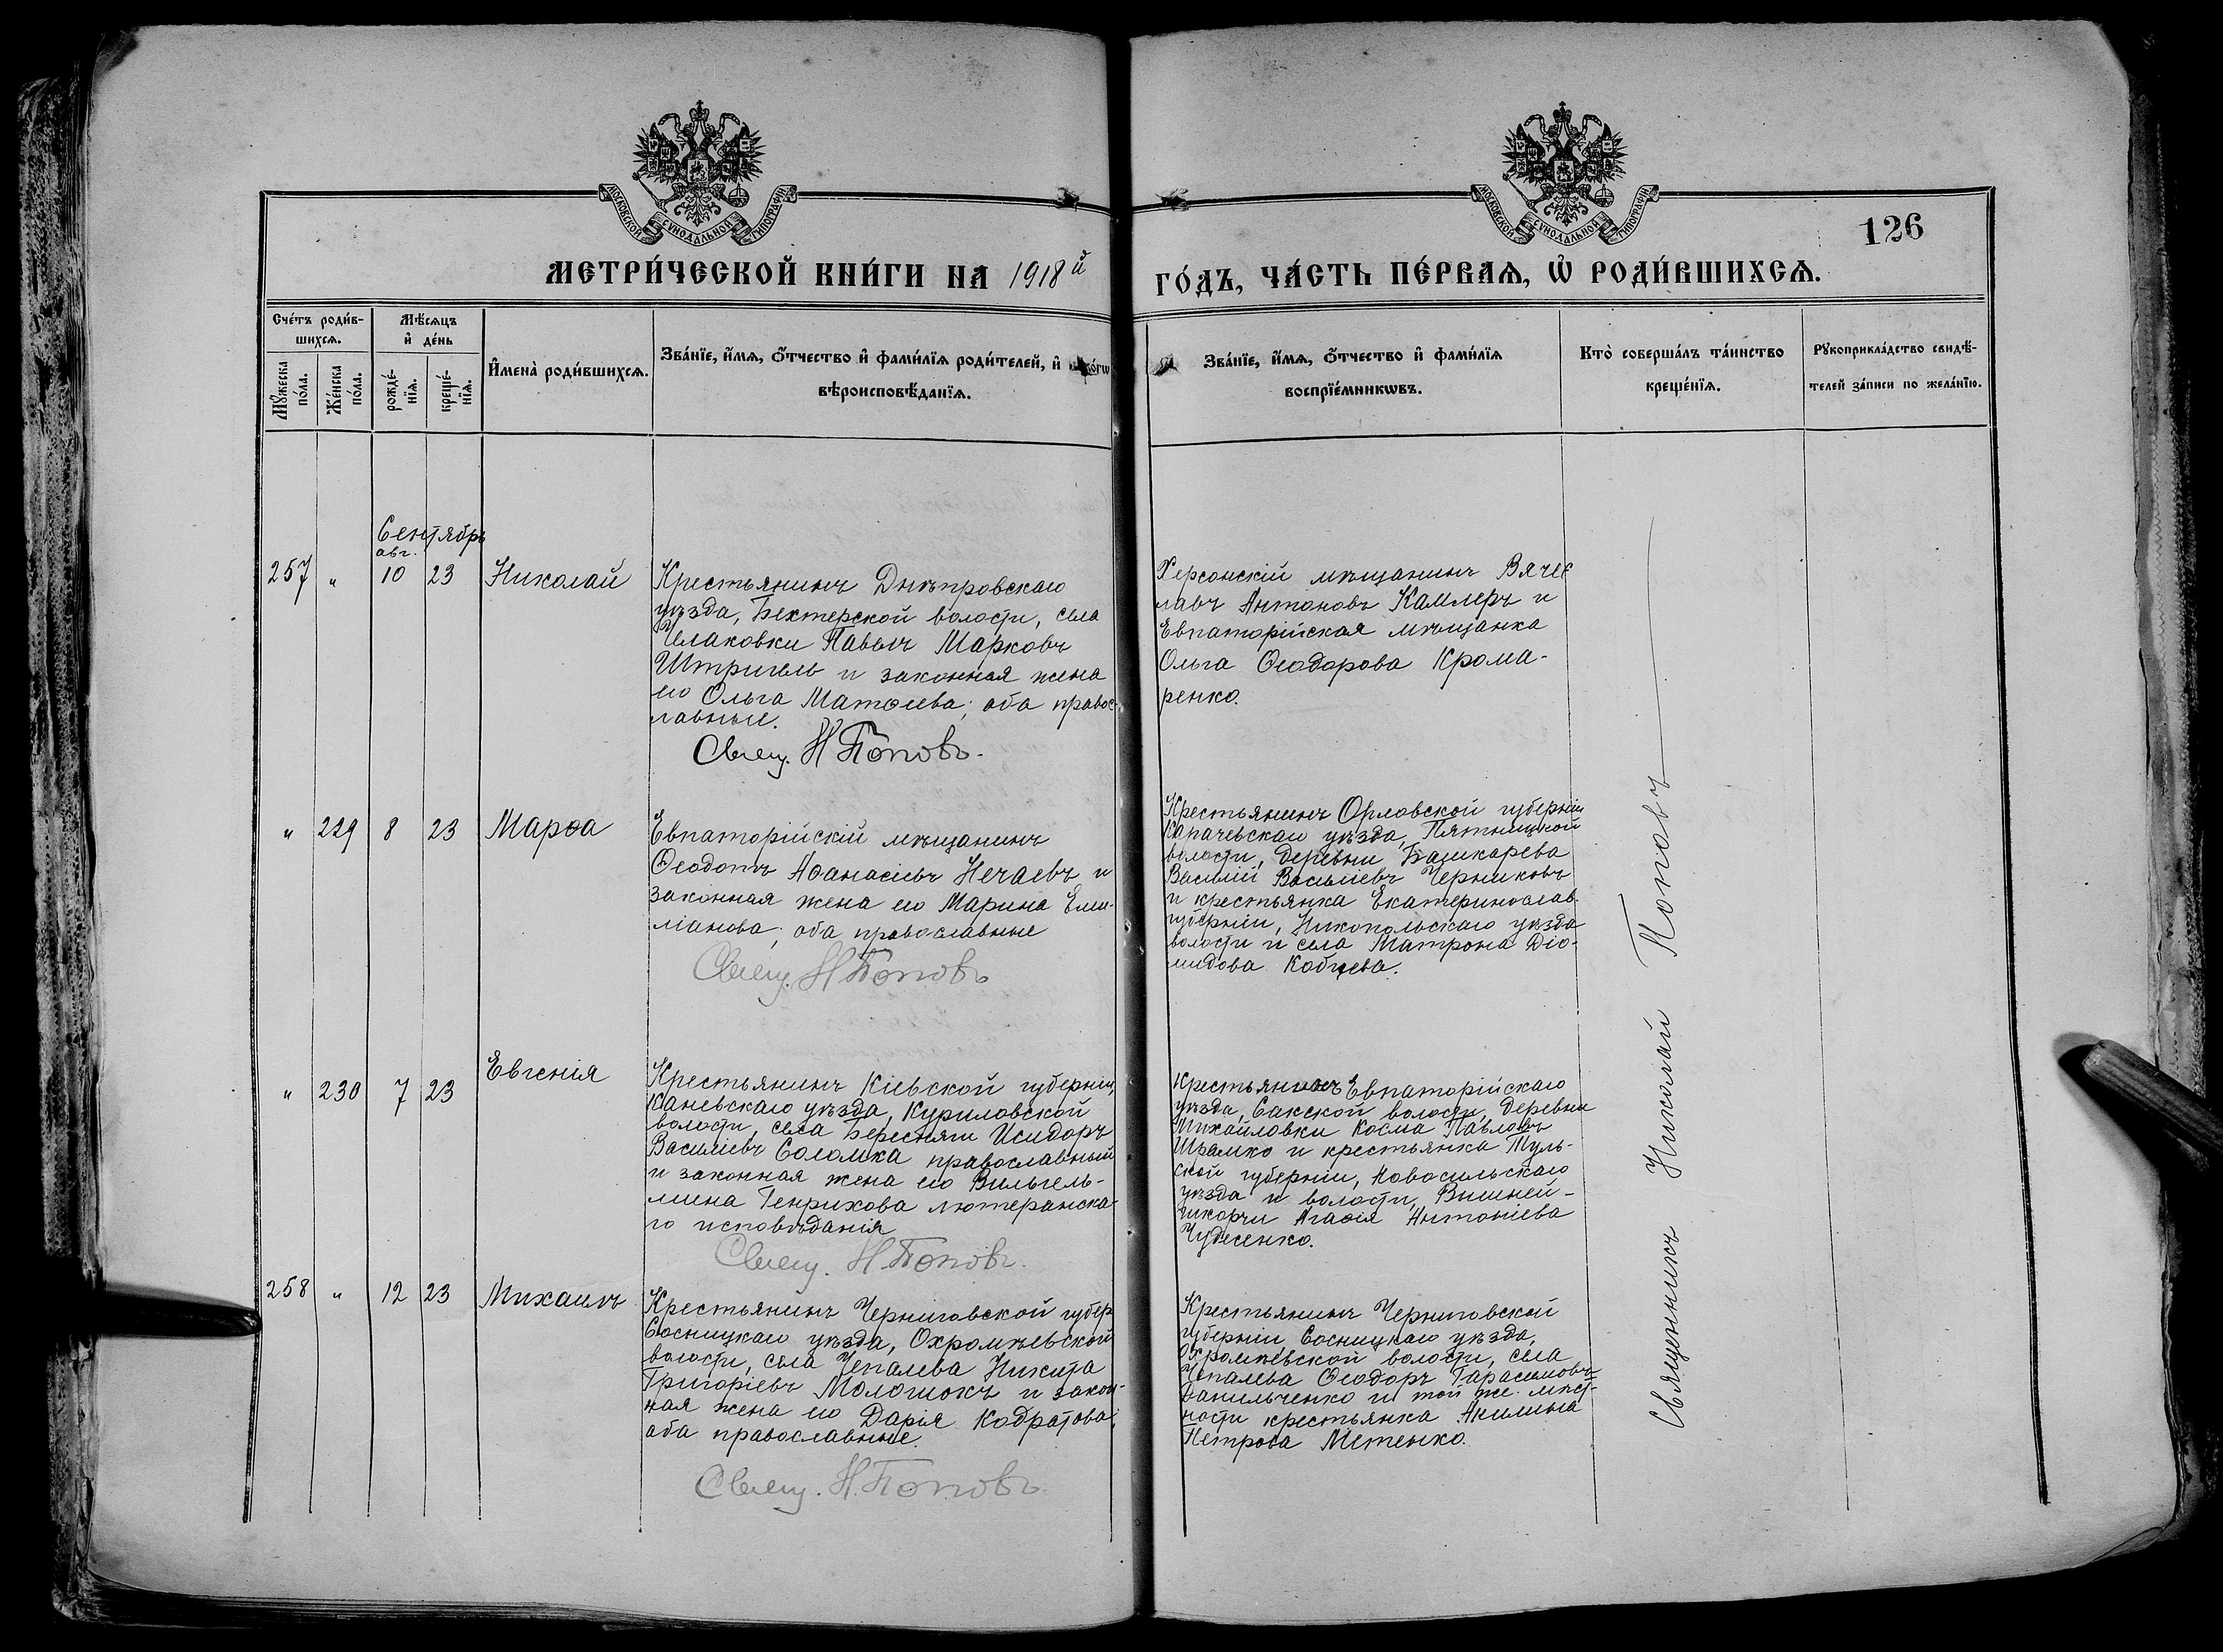 МОСКОВСКОЙ СѴНОДАЛЬНОЙ ТИПОГРАФІИ
МОСКОВСКОЙ СѴНОДАЛЬНОЙ ТИПОГРАФІИ
126
МЕТРИ́ЧЕСКОЙ КНИ́ГИ НА 1918й
ГО́ДЪ, ЧА́СТЬ ПЕ́РВАѦ, Ѡ҆ РОДИ́ВШИХСѦ.
Сче́тъ роди́в-
шихсѧ.
Мѣ́сѧцъ
и҆ де́нь
Мꙋ́жеска
по́ла.
Же́нска
по́ла.
рожде́-
нїѧ.
креще́-
нїѧ.
И҆мена̀ роди́вшихсѧ.
Зва́нїе, и҆́мѧ, ѻ҆́тчество и҆ фами́лїѧ роди́телей, и҆
вѣроисповѣ́данїѧ.
Зва́нїе, и҆́мѧ, ѻ҆́тчество и҆ фами́лїѧ
воспрїе́мникѡвъ.
Кто̀ соверша́лъ та́инство
креще́нїѧ.
Рꙋкоприкла́дство свидѣ́-
телей за́писи по жела́нїю.
Сентябрь
авг.
257 " 10 23 Николай
Крестьянинъ Днѣпровскаго
уѣзда, Бехтерской волости, села
Челаковки Павелъ Марковъ
Штригель и законная жена
его Ольга Матѳеева; оба правос-
лавные.
Свящ. Н Поповъ.
Херсонскій мѣщанинъ Вячес
лавъ Антоновъ Камлеръ и
Евпаторійская мѣщанка
Ольга Ѳеодорова Крома-
ренко.
" 229 8 23 Марѳа
Евпаторійскій мѣщанинъ
Ѳеодотъ Аѳанасіевъ Нечаевъ и
законная жена его Марина Еми-
ліанова; оба православные
Свящ. Н Поповъ
Крестьянинъ Орловской губерніи
Карачевскаго уѣзда, Пятницкой
волости, деревни Башкарева
Василій Васильевъ Черниковъ
и крестьянка Екатеринослав.
губерніи, Никопольскаго уѣзда
волости и села Матрона Діо-
мидова Кобцева.
" 230 7 23 Евгенія
Крестьянинъ Кіевской губерніи,
Каневскаго уѣзда, Куриловской
волости, села Бересняги Исидоръ
Василіевъ Соломка православный
и законная жена его Вильгель-
мина Генрихова лютеранска-
го исповѣданія
Свящ. Н. Поповъ.
Крестьянинъ Евпаторійскаго
уѣзда, Сакской волости, деревни
Михайловки Косма Павловъ
Шрамко и крестьянка Туль-
ской губерніи, Новосильскаго
уѣзда и волости, Вишней-
Агаѳія Антоніева
Чудесенко.
258 " 12 23 Михаилъ
Крестьянинъ Черниговской губер
Сосницкаго уѣзда, Охромѣевской
волости, села Чепалева Никита
Григоріевъ Молошокъ и закон-
ная жена его Дарія Кодратова;
оба православные.
Свящ. Н. Поповъ.
Крестьянинъ Черниговской
губерніи, Сосницкаго уѣзда,
Охромѣевской волости, села
Чепалева Ѳеодоръ Тарасимовъ
Данильченко и той же мѣст-
ности крестьянка Акилина
Петрова Метенко.
Священникъ Николай Поповъ